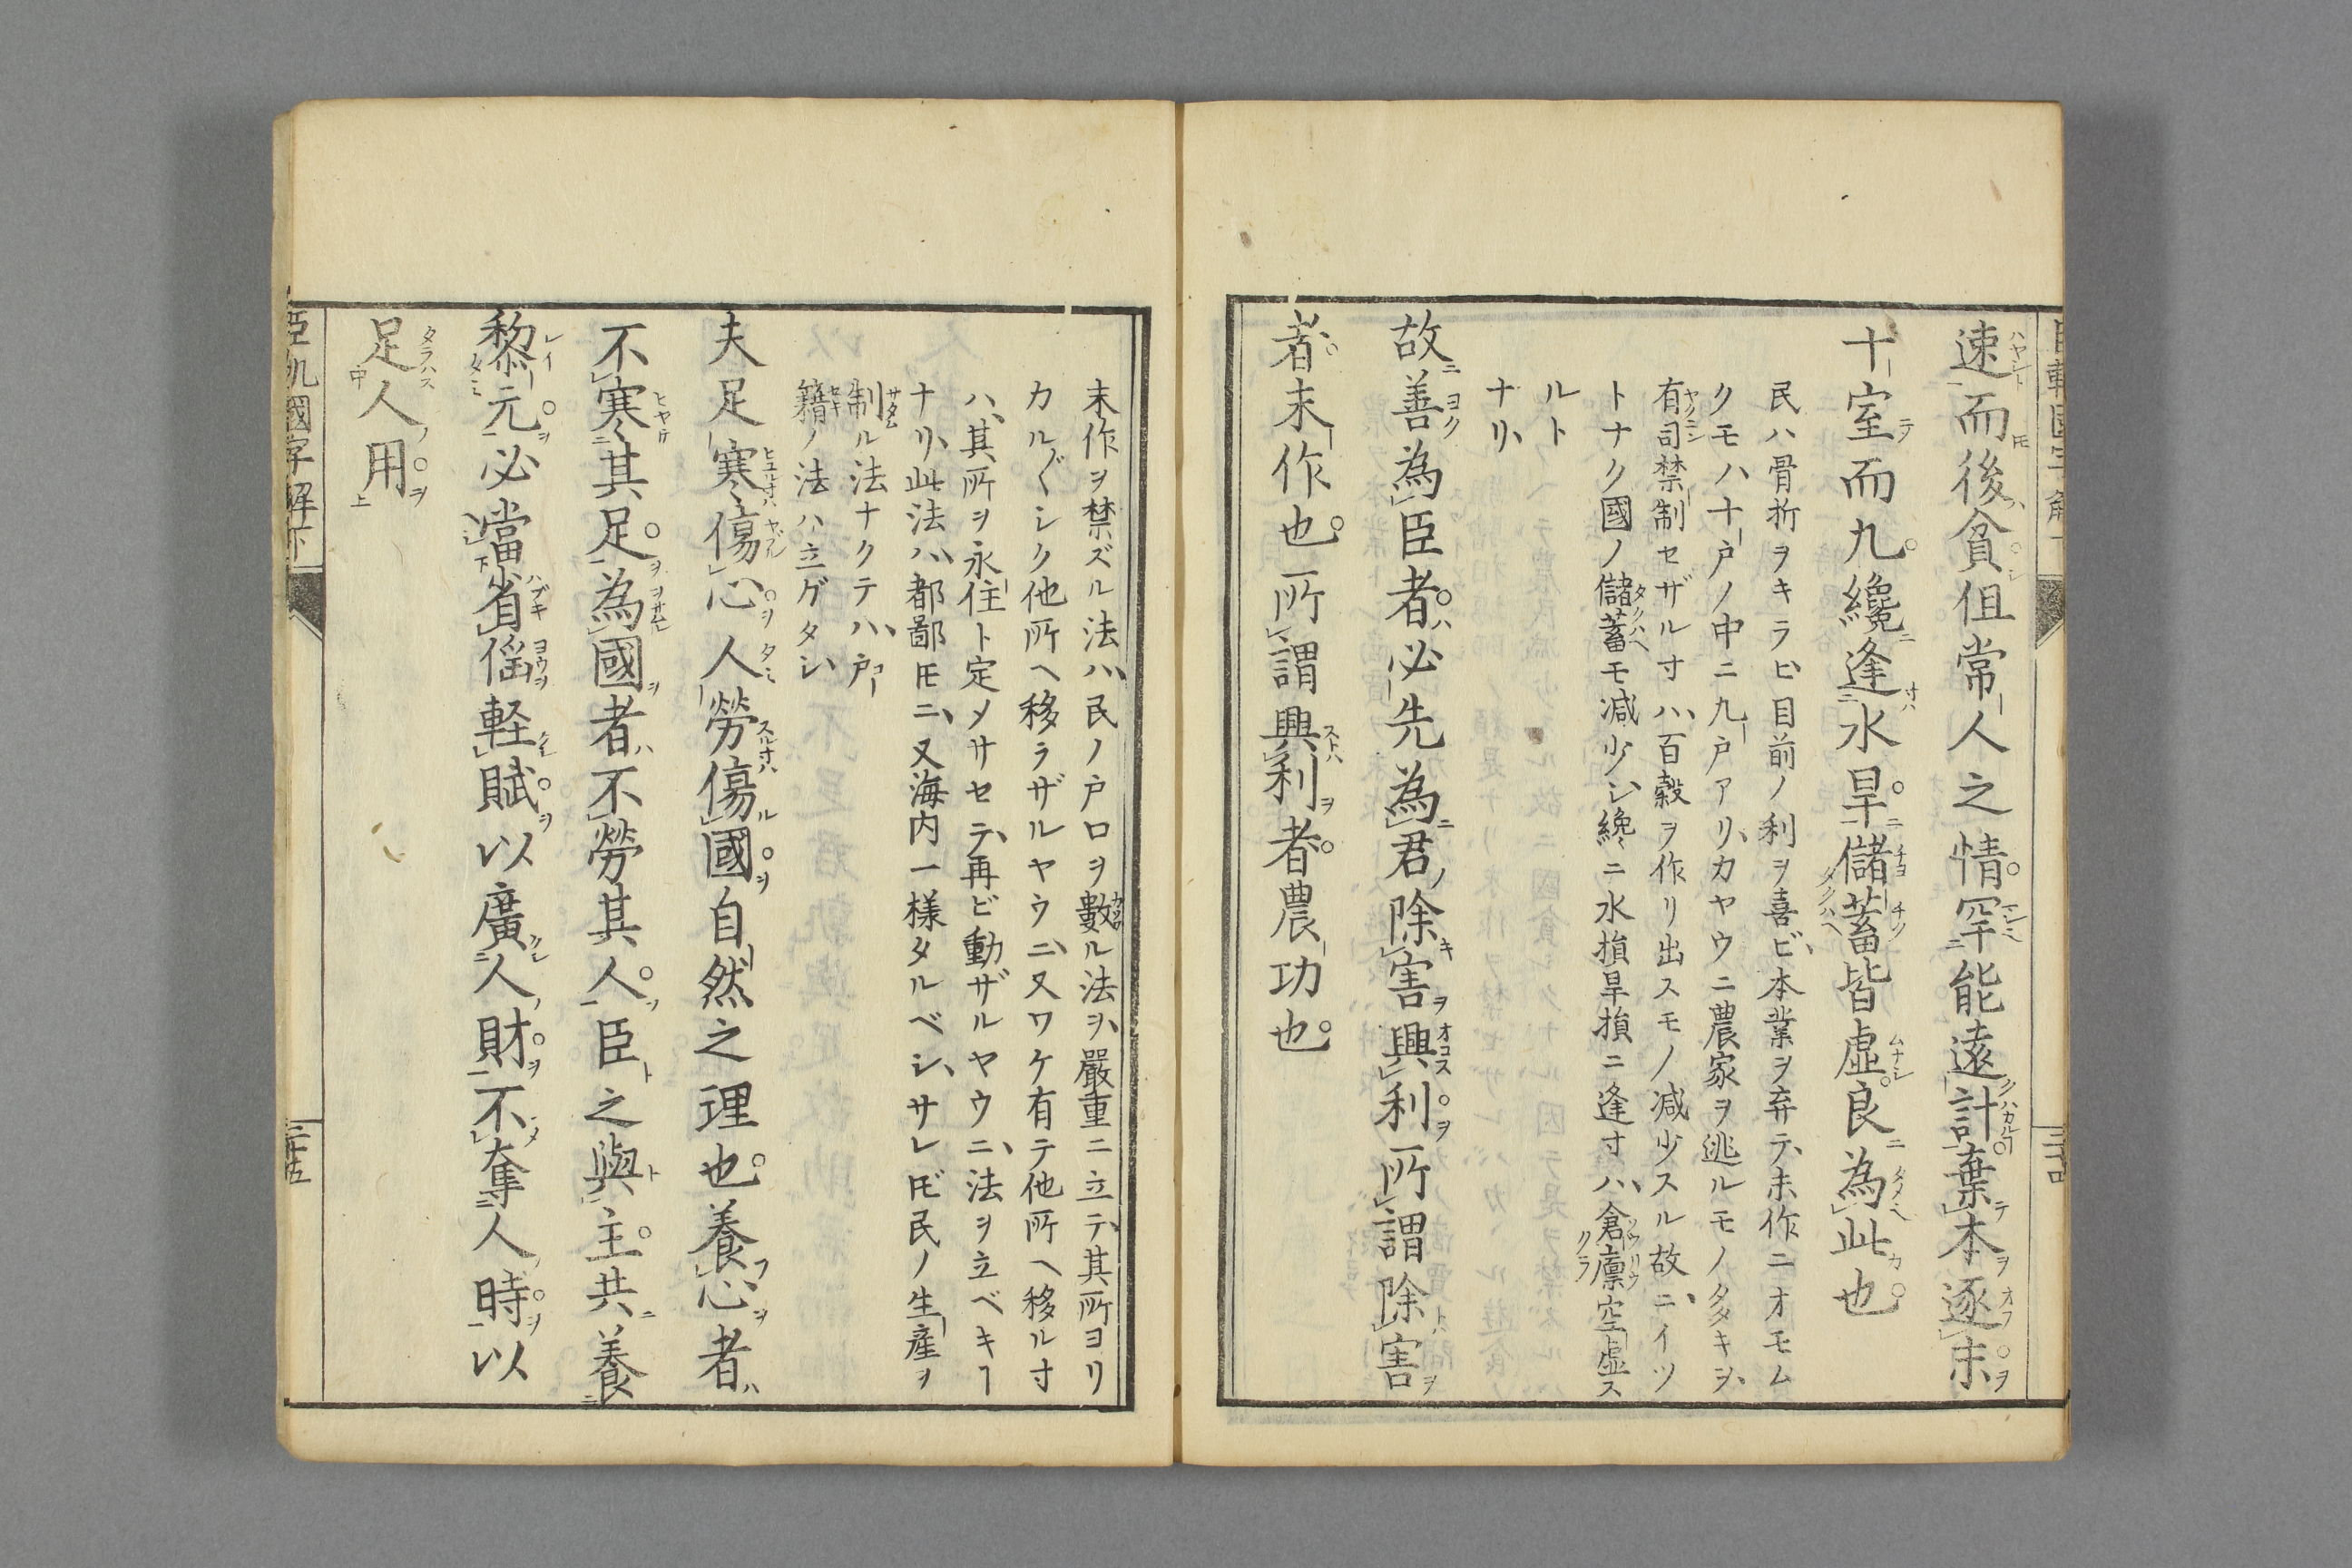 速而後貧但常人之情罕能遠計棄本逐末
十室而九纔逢水旱儲蓄皆虚良為此也
民ハ骨折ヲキラヒ目前ノ利ヲ喜ビ、本業ヲ弃テ、末作ニオモム
クモノハ十戸ノ中ニ九戸アリ、カヤウニ農家ヲ逃ルモノ多キヲ、
有司禁制セザルヰハ、百穀ヲ作リ出スモノ減少スル故ニ、イツ
トナク國ノ儲蓄モ減少シ、纔ニ水損旱損ニ逢寸ハ、倉廪空虚ス
ルト
ナリ、
故善為臣者必先為君除害興利所謂除害
者末作也所謂興利者農功也
末作ヲ禁ズル法ハ、民ノ戸口ヲ數ル法ヲ、嚴重ニ立テ、其所ヨリ
カル〲シク他所ヘ移ラザルヤウニ、又ワケ有テ他所ヘ移ル寸
ハ、其所ヲ永住ト定メサセテ、再ビ動ザルヤウニ、法ヲ立ベキヿ
ナリ、此法ハ、都鄙𪜈ニ、又海内一様タルベシ、サレ𪜈民ノ生産ヲ
制ル法ナクテハ、戸
籍ノ法ハ立ゲタシ
夫足寒傷心人勞傷國自然之理也養心者
不寒其足為國者不勞其人臣之與主共養
黎元必當省徭軽賦以廣人財不奪人時以
足人用
臣軌國字解下
三十四
三十五